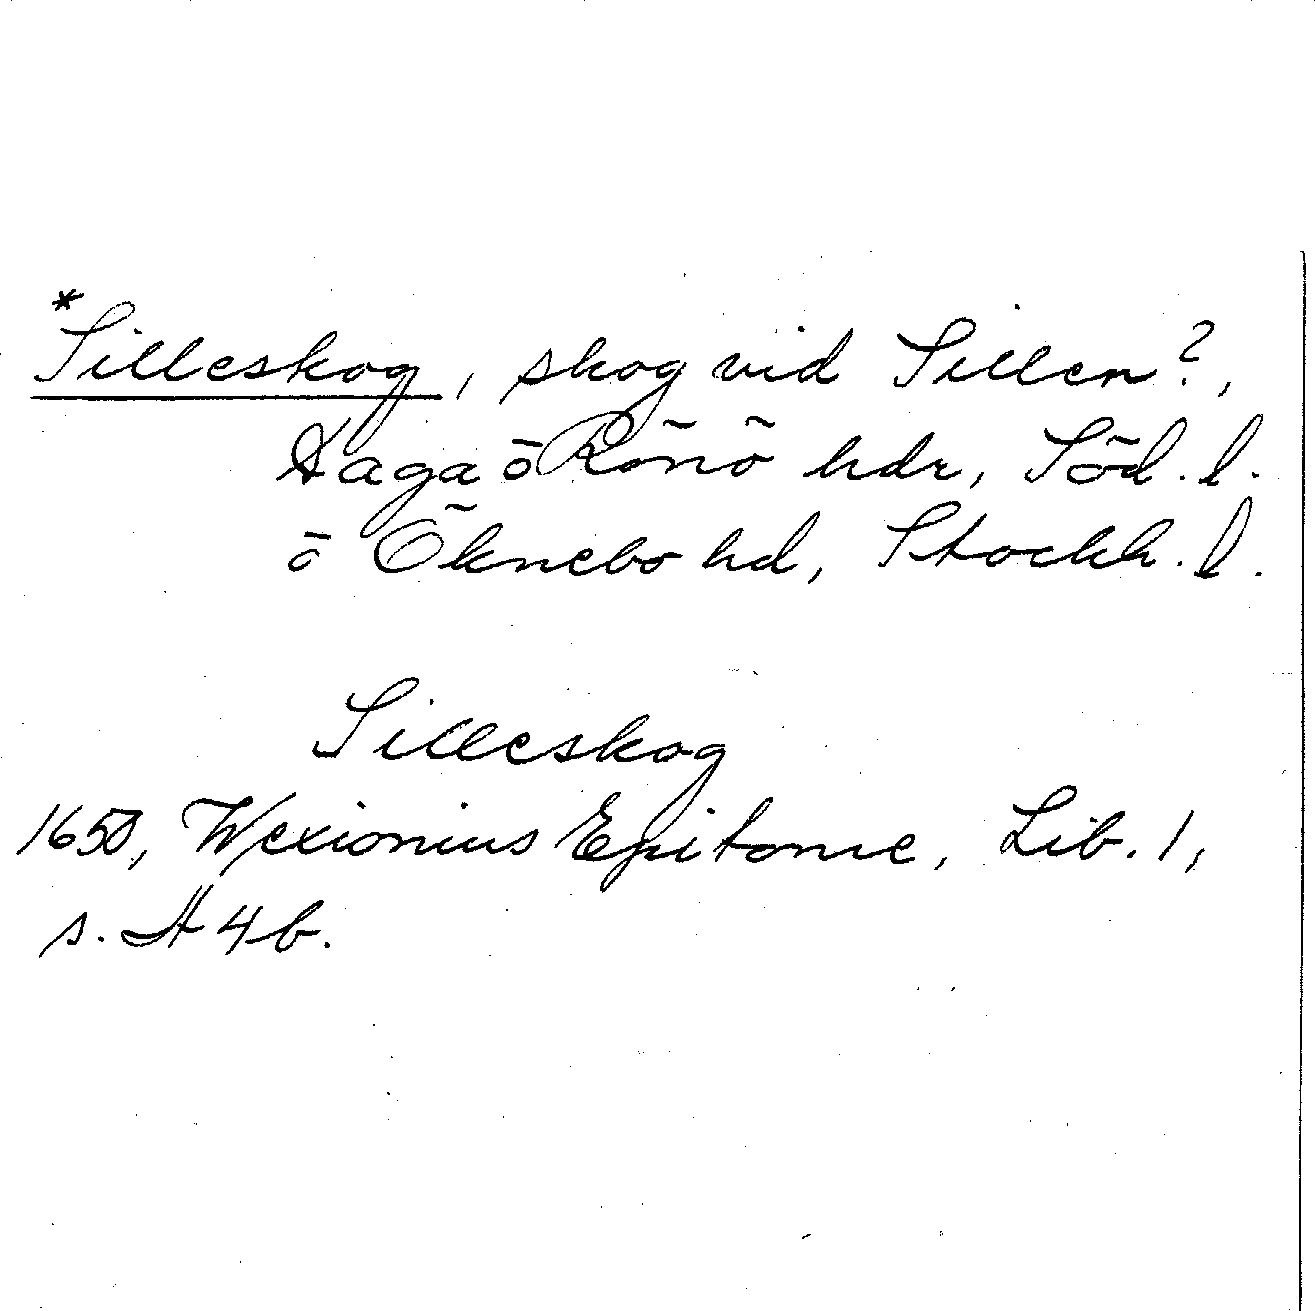 *Silleskog, skog vid Sillen?,
Daga o Rönö hdr, Söd. l.
o Öknebo hd, Stockh. l.
Silleskog
1650, Wexionius Epitome, Lib. 1,
s. A 4 b.